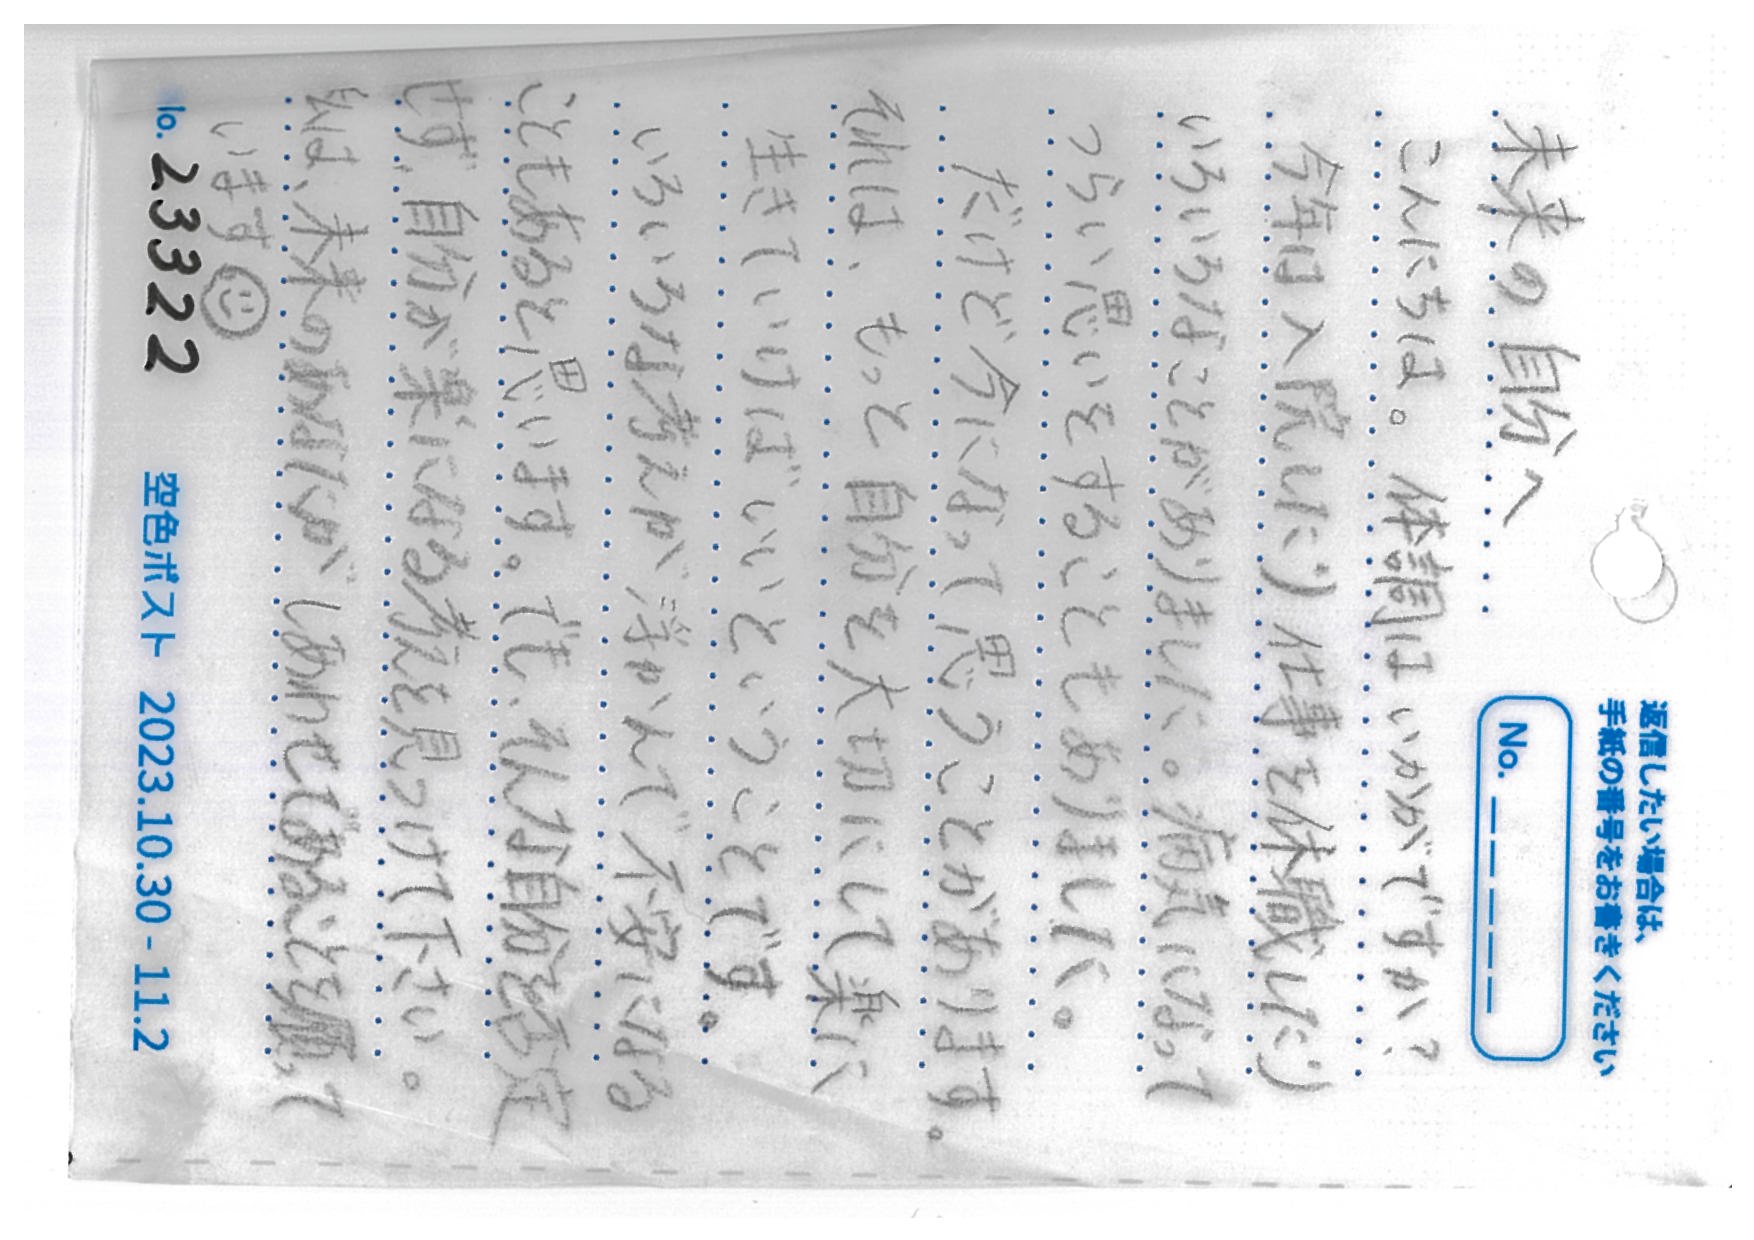 返信したい場合は、
手紙の番号をお書きください
No. _ _ _ _ _
未来の自分へ
こんにちは。体調はいかがですか?
今年は入院したり仕事を休職したり
いろいろなことがありました。病気になって
つらい思いをすることもありました。
だけど今になって思うことがあります。
それは、もっと自分を大切にして楽に
生きていけばいいということです。
いろいろな考えが浮かんで不安になる
こともあると思います。でも、そんな自分を否定
せず、自分が楽になる考えを見つけて下さい。
私は、未来のあなたがしあわせであることを願って
います
No. 23322
空色ポスト 2023.10.30 - 11.2